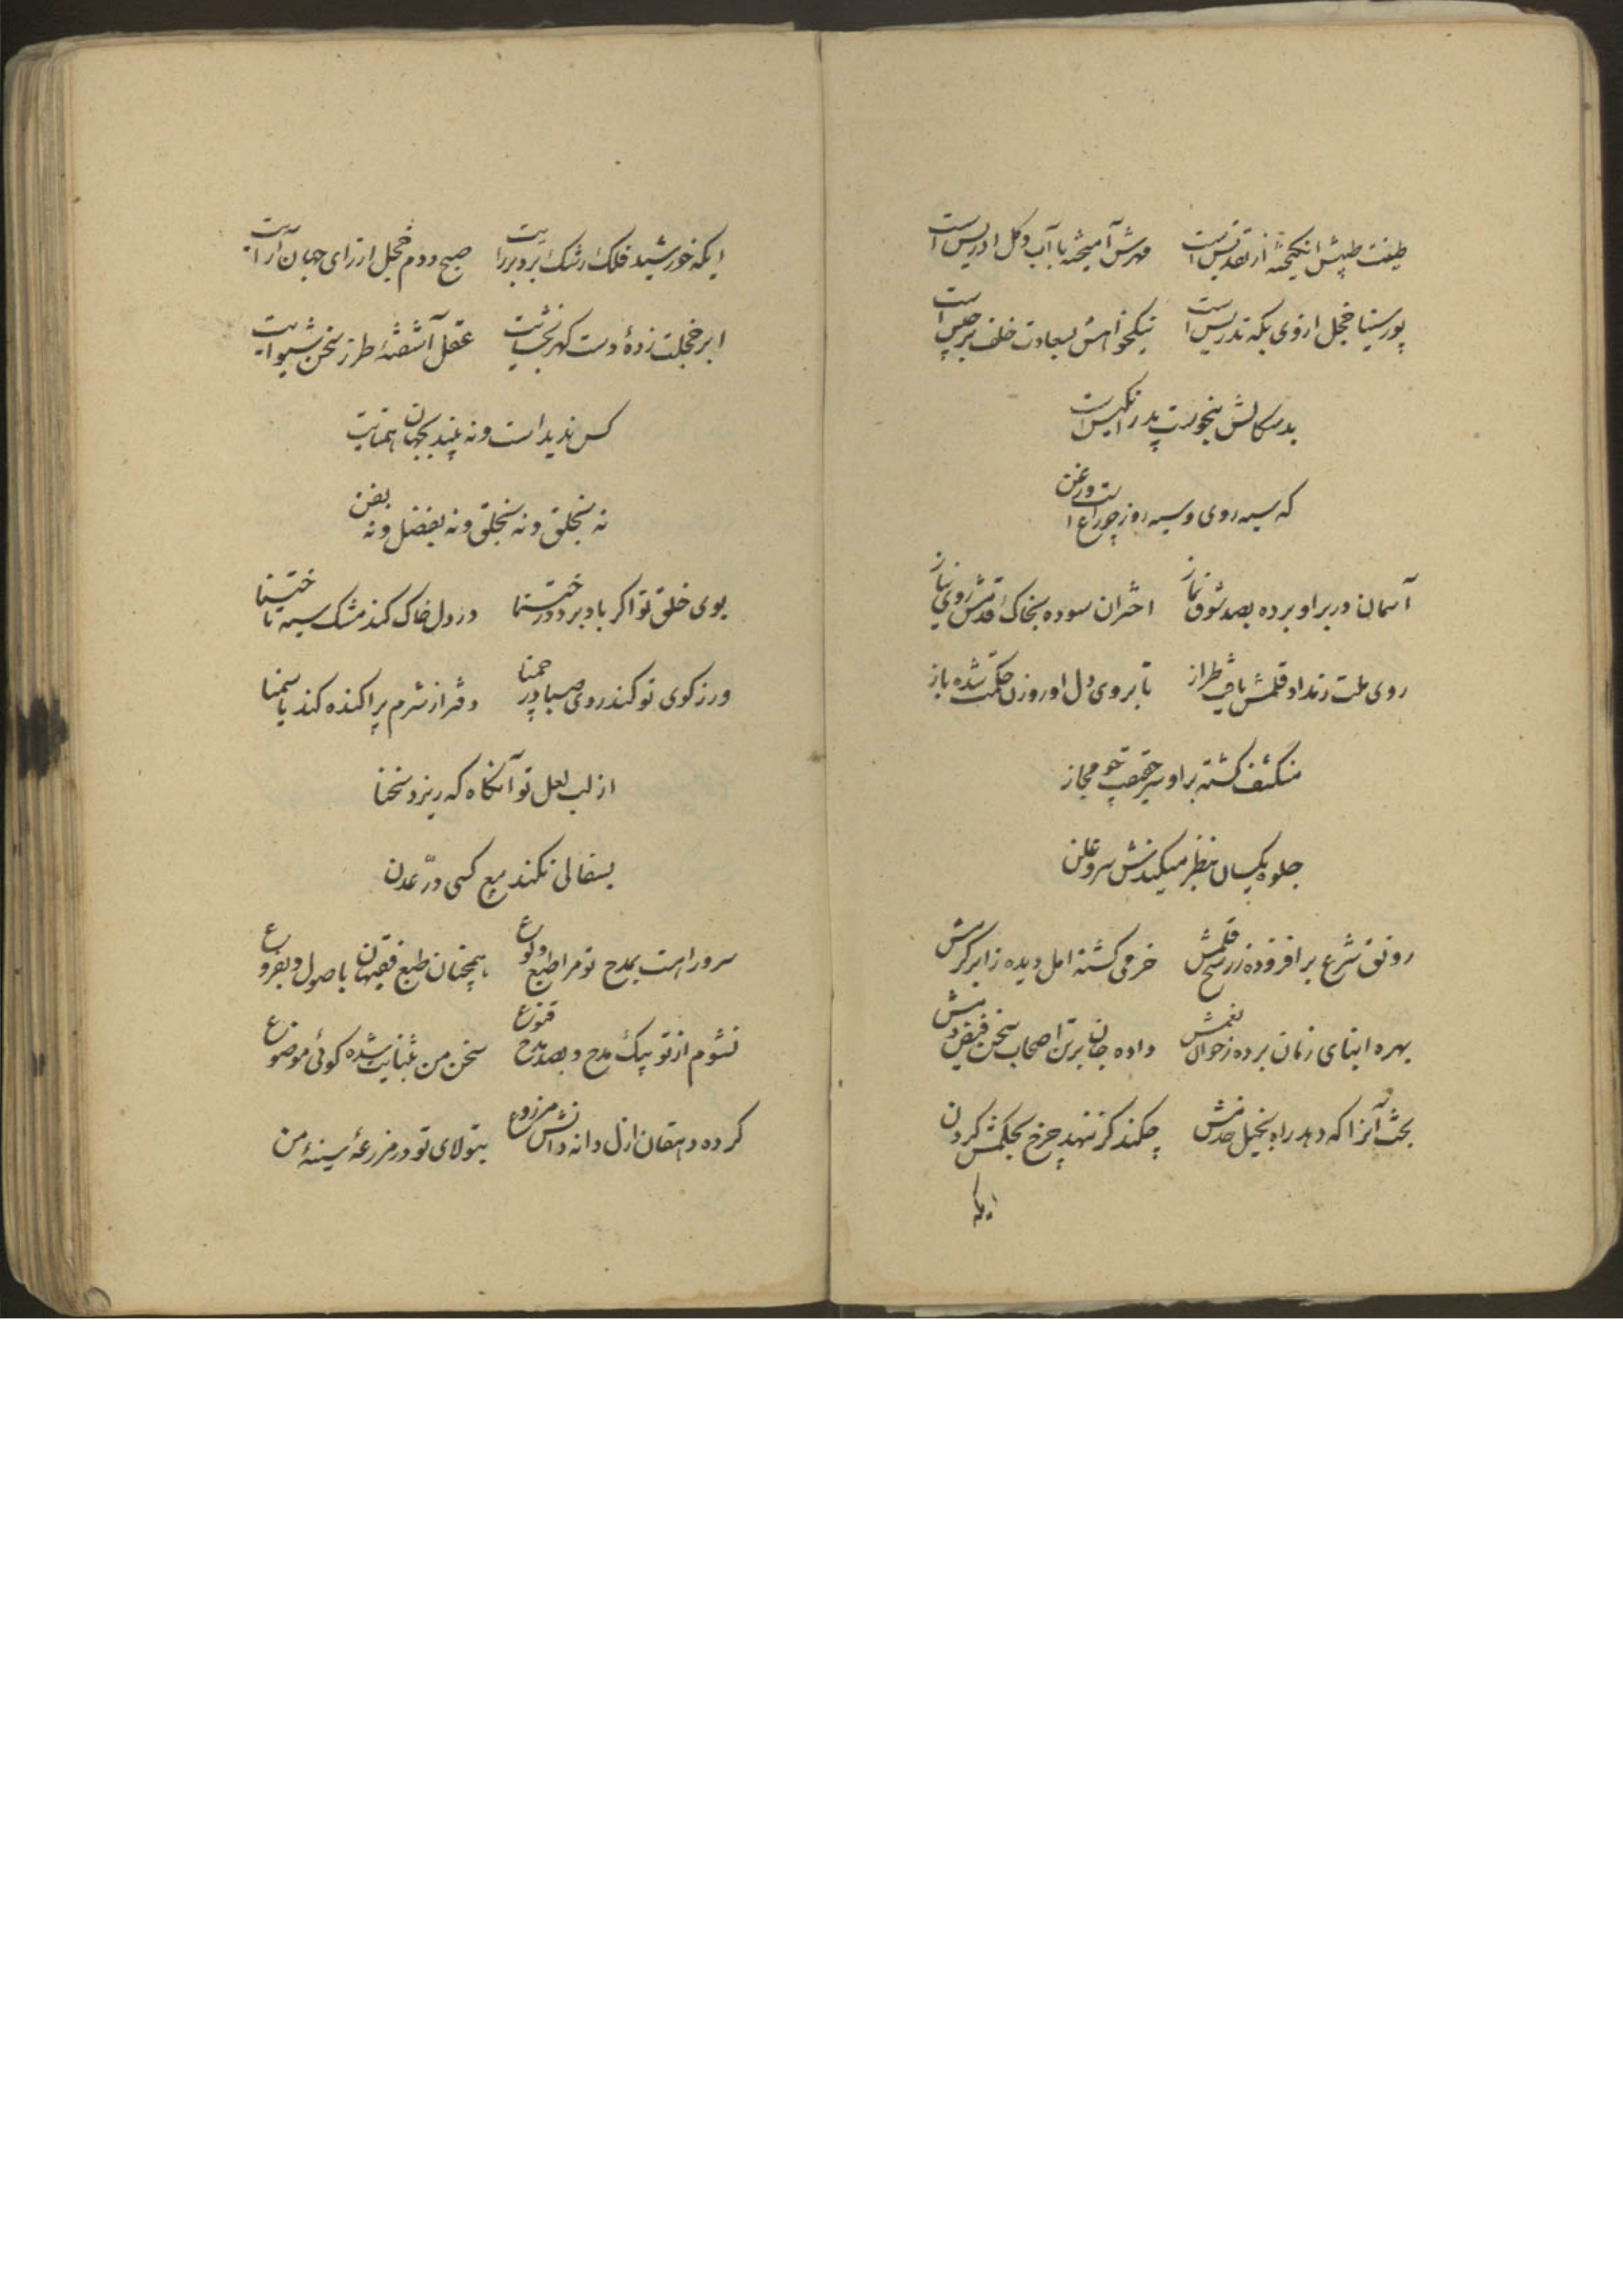 طینت طیبش انگیخته از تقدیس است مهرش آمیخته با آب و گل ادریس است
پور سینا خجل از وی بگه تدریس است نیکخواهش بسعادت خلف برجیس است
بدسگالش بنحوست پدر انگیس است
که سیه روی و سیه روز چراغ است و زغن
آسمان در بر او برده بصد شوق نماز اختران سوده بخاک قدمش روی نیاز
روی ملت ز مداد قلمش یافت طراز تا بروی دل او روزن حکمت شده باز
منکشف گشته بر او سر حقیقت چو مجاز
جلوه یکسان بنظر میکندش سر و علن
رونق شرع برافزوده ز رشح قلمش خرمی کشته امل دیده ز ابر کرمش
بهره ابنای زمان برده ز خوان نعمش داده جان بر تن اصحاب سخن فیض دمش
بخت آنرا که دهد راه بخیل خدمش چکند گر ننهد چرخ بحکمش گردن
ایکه
ایکه خورشید فلک رشک برد بر رایت صبح دوم خجل از رای جهان آرایت
ابر خجلت زدهٔ دست گهر بخشایت عقل آشفتهٔ طرز سخن شیوایت
کس ندیدست و نه بیند بجهان همتایت
نه بخلق و نه بخلق و نه بفضل و نه بفن
بوی خلق تو اگر باد برد در ختنا در دل خاک کند مشک سیه تا ختنا
ور ز کوی تو کند روی صبا در چمنا دفتر از شرم پراکنده کند یاسمنا
از لب لعل تو آنگاه که ریزد سخنا
بسفالی نکند بیع کسی درّ عدن
سرورا هست بمدح تو مرا طبع ولوع همچنان طبع فقیهان باصول و بفروع
نشوم از تو بیک مدح و بصد مدح قنوع سخن من بثنایت شده گوئی موضوع
کرده دهقان ازل دانه دانش مزروع بتولای تو در مزرعهٔ سینهٔ من